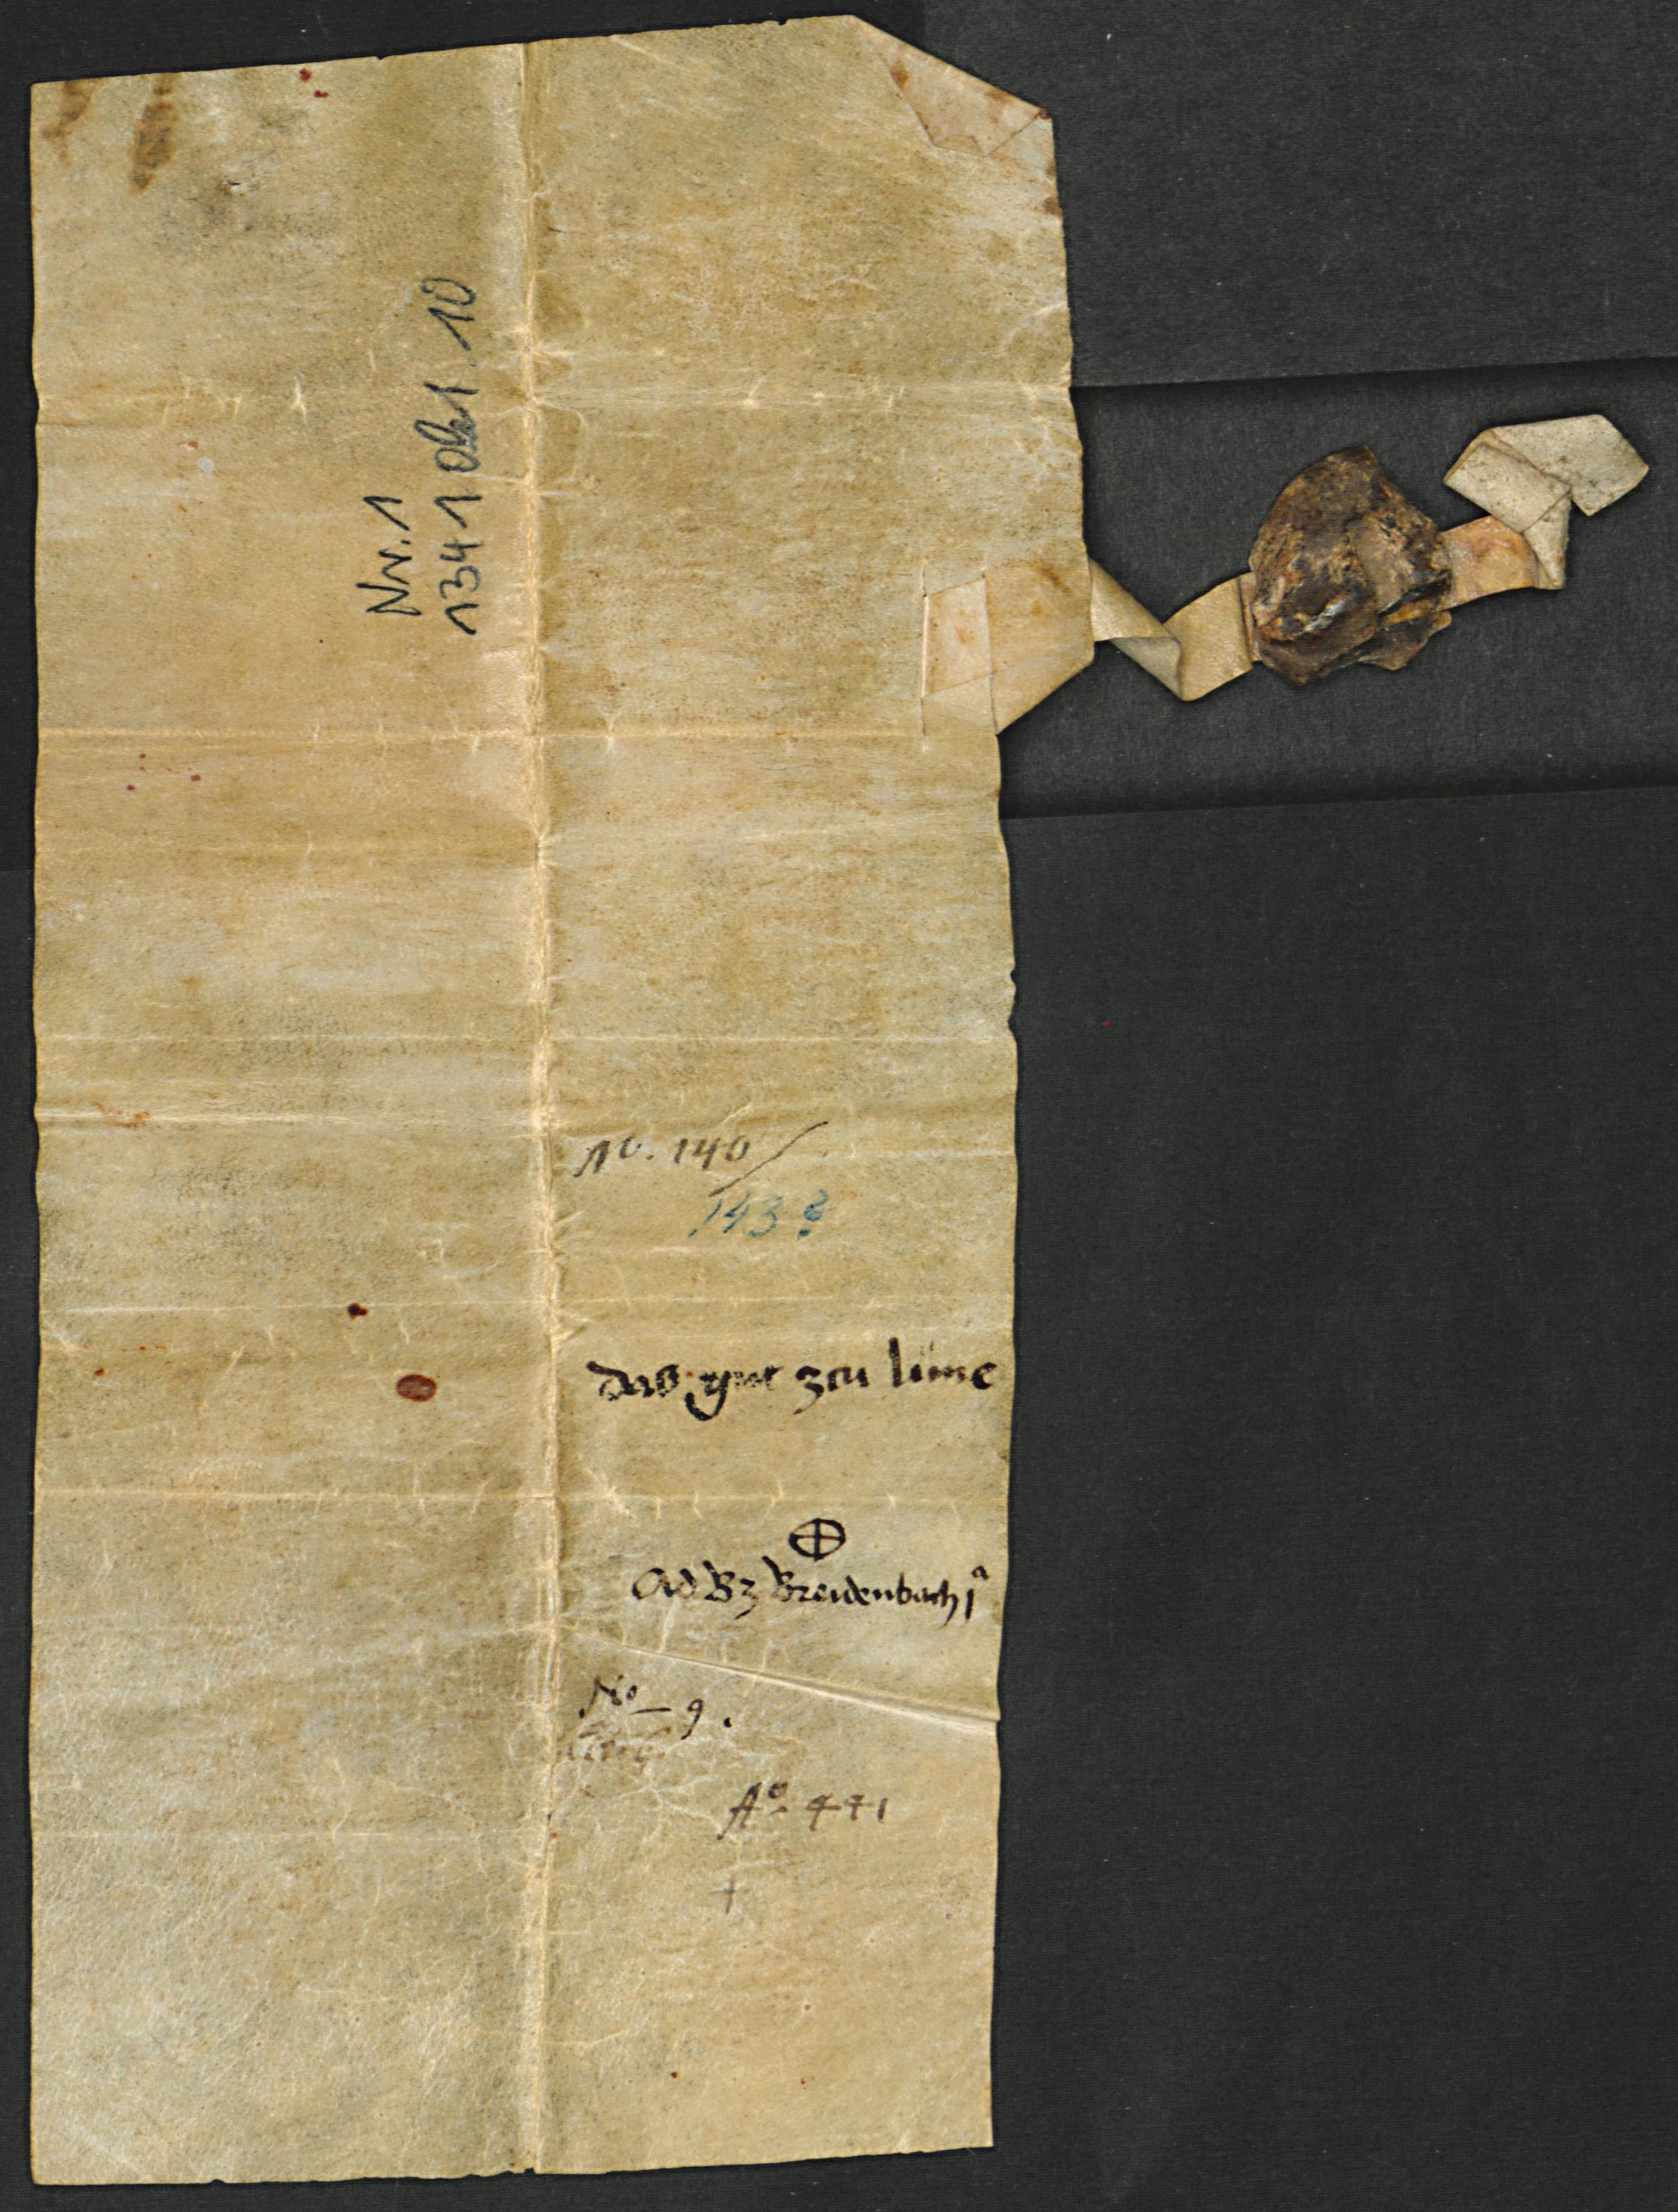 Nr. 1
1341 Okt. 10
No. 140
143?
das gut zcu lune
Ad Bz Breidenbach 1ª
No 9.
Aº. 441